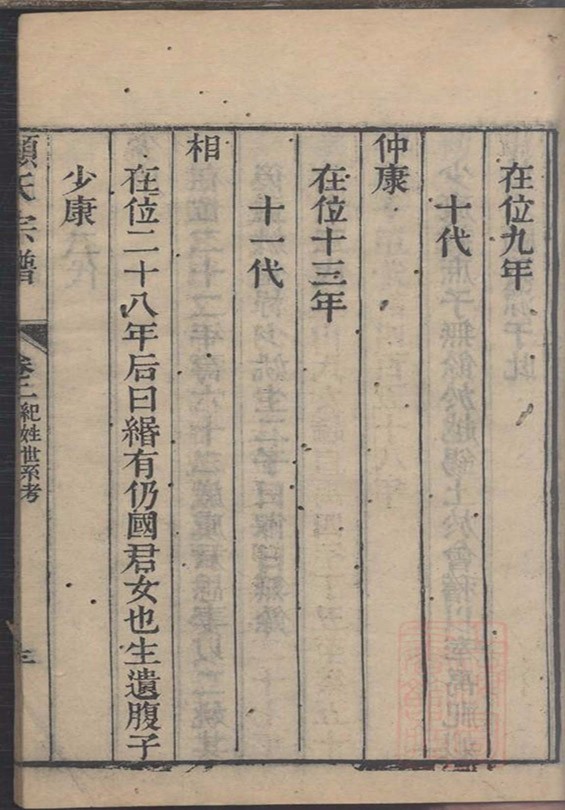 在位九年
十代
仲康
在位十三年
十一代
相
在位二十八年后曰緡有仍國君女也生遺腹子
少康
氏宗譜
卷二紀姓世系考
三